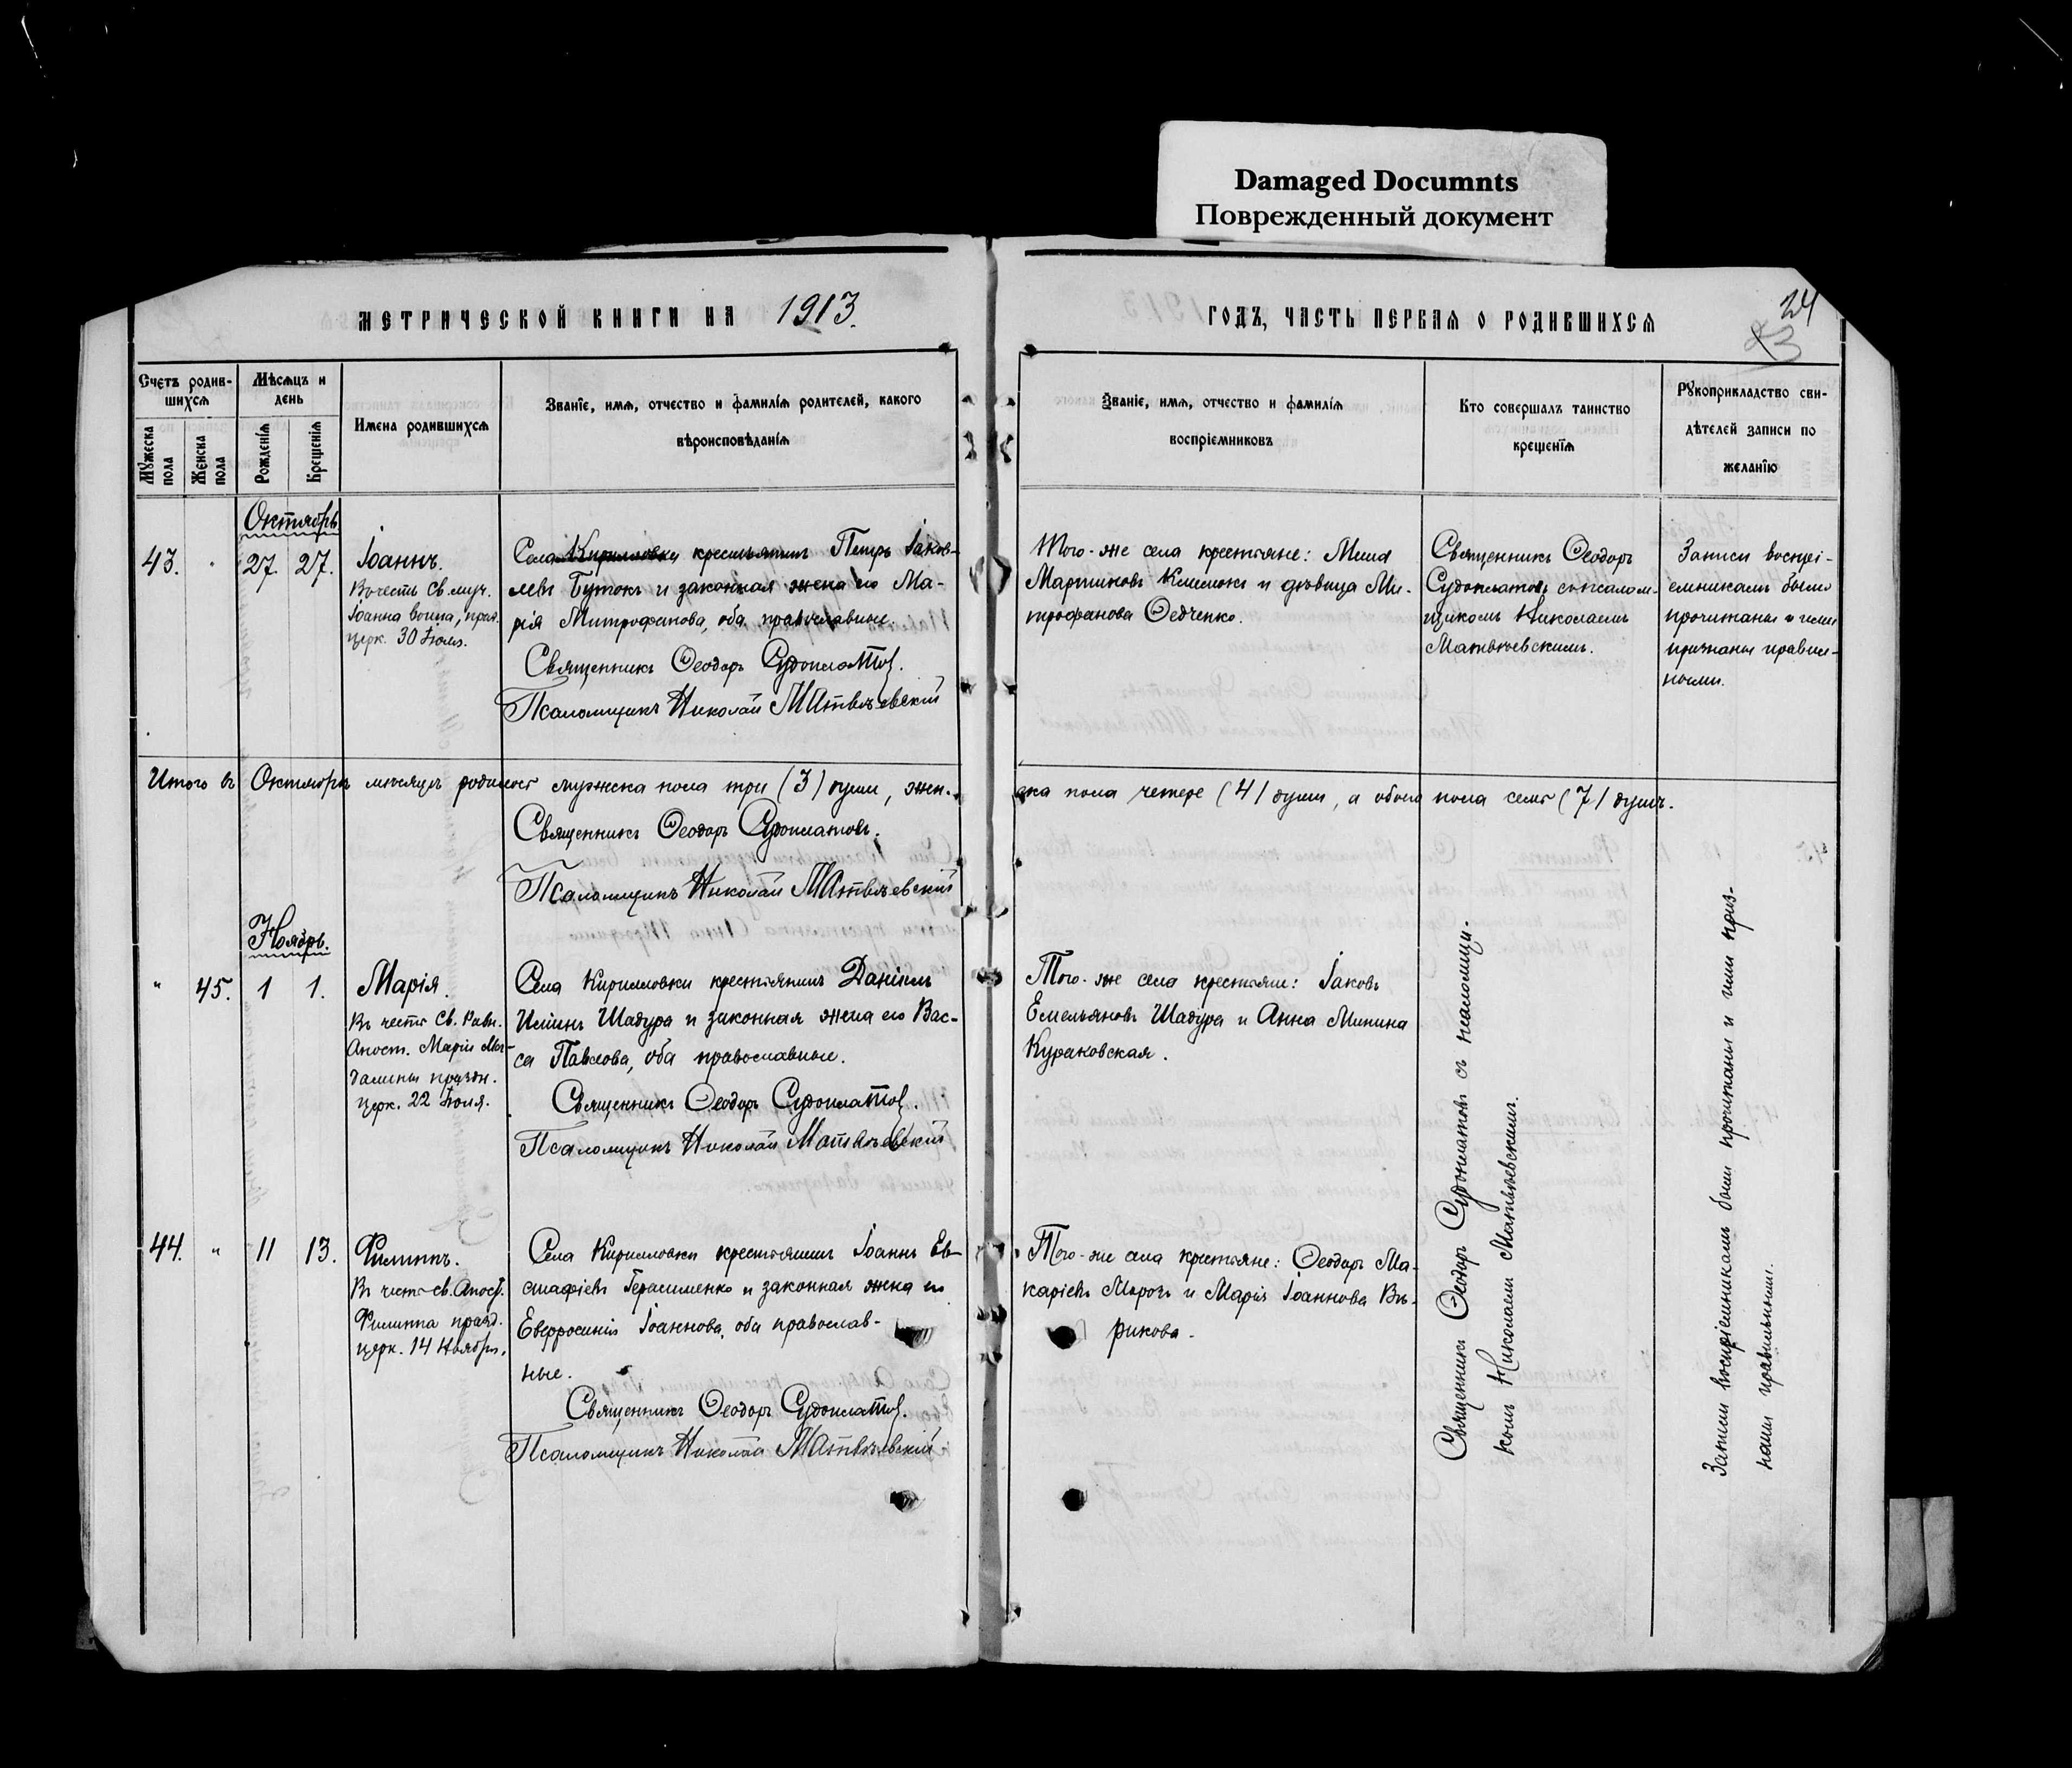 Damaged Documnts
Поврежденный документ
МЕТРИЧЕСКОЙ КНИГИ НА 1913.
ГОДЪ, ЧАСТЬ ПЕРВАЯ О РОДИВШИХСЯ
24
Счетъ родив-
шихся
Мужеска пола
Женска пола
Мѣсяцъ и
день
Рожденія
Крещенія
Имена родившихся
Званіе, имя, отчество и фамилія родителей, какого
вѣроисповѣданія
Званіе, имя, отчество и фамилія
воспріемниковъ
Кто совершалъ таинство
крещенія
Рукоприкладство сви-
дѣтелей записи по
желанію
Октябрь.
43. " 27. 27.
Іоаннъ.
Въ честь Св. муч.
Іоанна воина, празд.
церк. 30 Іюля.
Села Кирилловки крестьянинъ Петръ Іаков-
левъ Бутокъ и законная жена его Ма-
рія Митрофанова, оба православные.
Священникъ Ѳеодоръ Судоплатов.
Псаломщикъ Николай Матвѣевскій
Того-же села крестьяне:
Мартиновъ и дѣвица Ми-
трофанова Ѳедченко.
Священникъ Ѳеодоръ
Судоплатовъ съ псалом-
щикомъ Николаемъ
Матвѣевскимъ.
Записи воспрі-
емникамъ были
прочитаны и ими
признаны правиль-
ными.
Итого въ Октябрѣ мѣсяцѣ родилось мужска пола три (3) души, жен-
ска пола четыре (4) души, а обоего пола семь (7) душъ.
Священникъ Ѳеодоръ Судоплатовъ.
Псаломщикъ Николай Матвѣевскій
Ноябрь.
" 45. 1 1.
Марія.
Въ честь Св. Равн.
Апост. Маріи Маг-
далины праздн.
церк. 22 Іюля.
Села Кирилловки крестьянинъ Даніилъ
Ильинъ Шадура и законная жена его Вас-
са Павлова, оба православные.
Священникъ Ѳеодоръ Судоплатов.
Псаломщикъ Николай Матвѣевскій
Того-же села крестьяне: Іаковъ
Емельяновъ Шадура и Анна Минина
Кураковская.
44. " 11 13.
Филиппъ.
Въ честь св. Апост.
Филиппа празд.
церк. 14 Ноября.
Села Кирилловки крестьянинъ Іоаннъ Ев-
стафіевъ Герасименко и законная жена его
Евфросинія Іоаннова, оба православ-
ные.
Священникъ Ѳеодоръ Судоплатов.
Псаломщикъ Николай Матвѣевскій
Того-же села крестьяне: Ѳеодоръ Ма-
каріевъ Морозъ и Марія Іоаннова Ве-
рикова.
Священникъ Ѳеодоръ Судоплатовъ съ псаломщи-
комъ Николаемъ Матвѣевскимъ.
Записи воспріемникамъ были прочитаны и ими приз-
наны правильными.